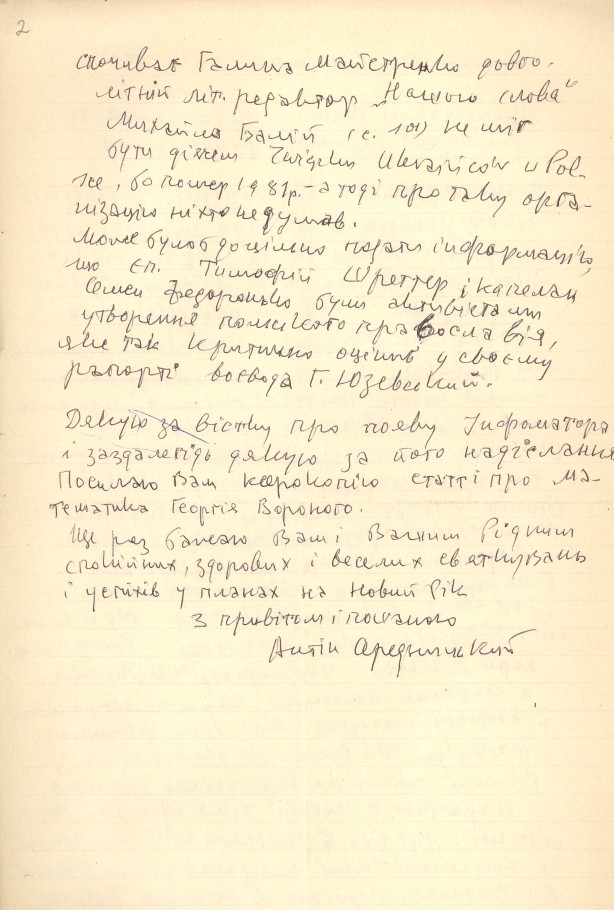 2
спочиває Галина Майстренко довго-
літній літ. редактор „Нашого слова"
Михайло Балій (с. 101) не міг
бути діячем Związku Ukraińców w Pol-
sce, бо помер 1981р. – а тоді про таку орга-
нізацію ніхто не думав.
Може було б доцільно подати інформацію,
що єп. Тимофій Шреттер і капелан
Семен Федоронько були активістами
утворення польського православія,
яке так критично оцінив у своєму
рапорті воєвода Г. Юзевський.
Дякую за вістку про появу Інформатора
і заздалегідь дякую за його надіслання
Посилаю Вам ксерокопію статті про ма-
тематика Георгія Вороного.
Ще раз бажаю Вам і Вашим Рідним
спокійних, здорових і веселих святкувань
і успіхів у планах на Новий Рік
З привітом і пошаною
Антін Середницький